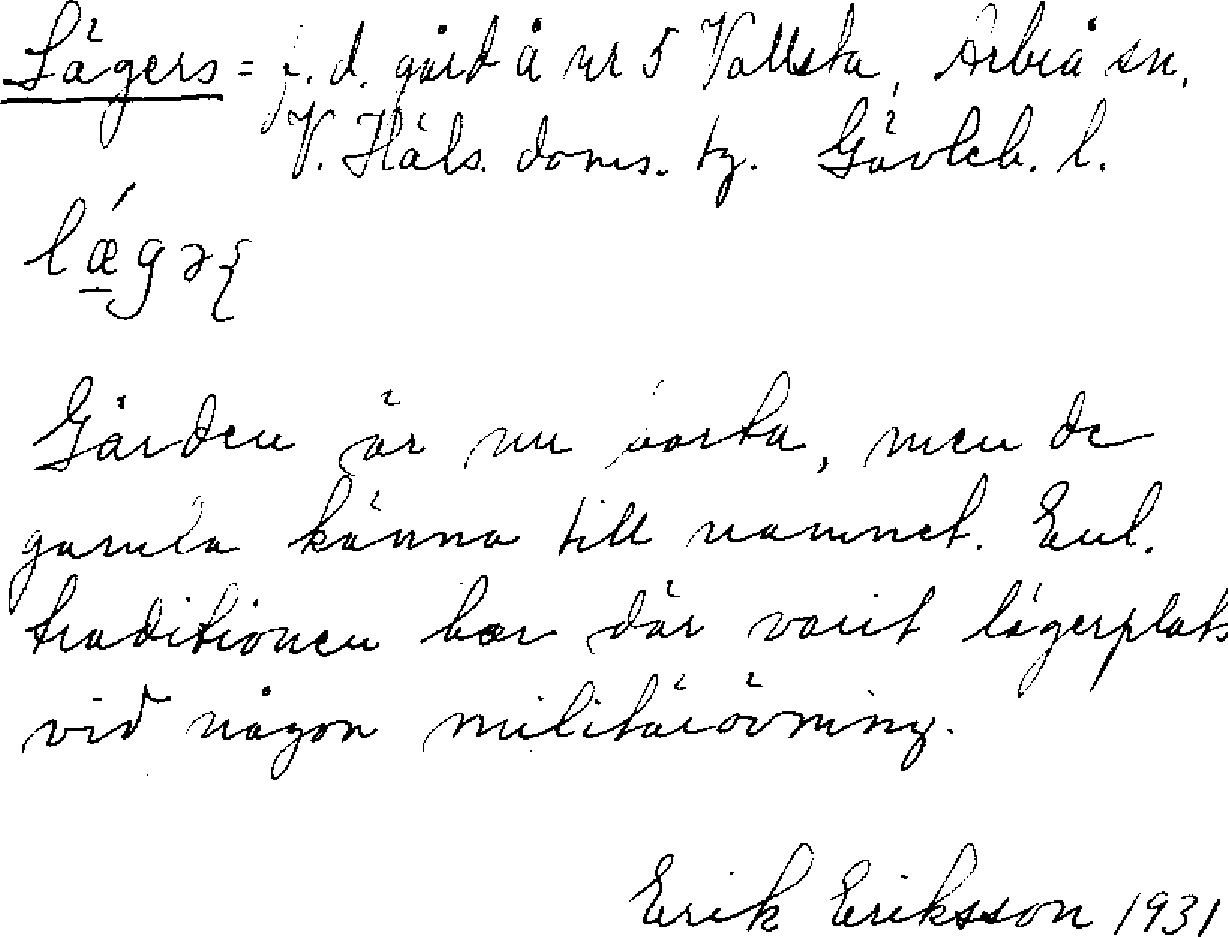 Lägers = f. d. gård å nr 5 Vallsta, Arbrå sn.
V. Häls. doms. tg. Gävleb. l.
lǽgəʂ
Gården är nu borta, men de
gamla känna till namnet. Enl.
traditionen har där varit lägerplats
vid någon militärövning.
Erik Eriksson 1931